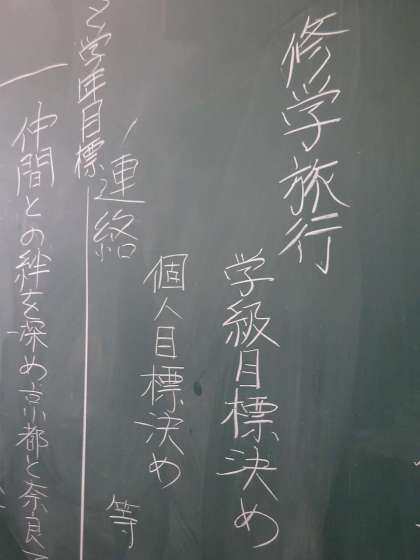 修学旅行
学級目標決め
個人目標決め
等
連絡
学年目標
仲間との絆を深め京都と奈良